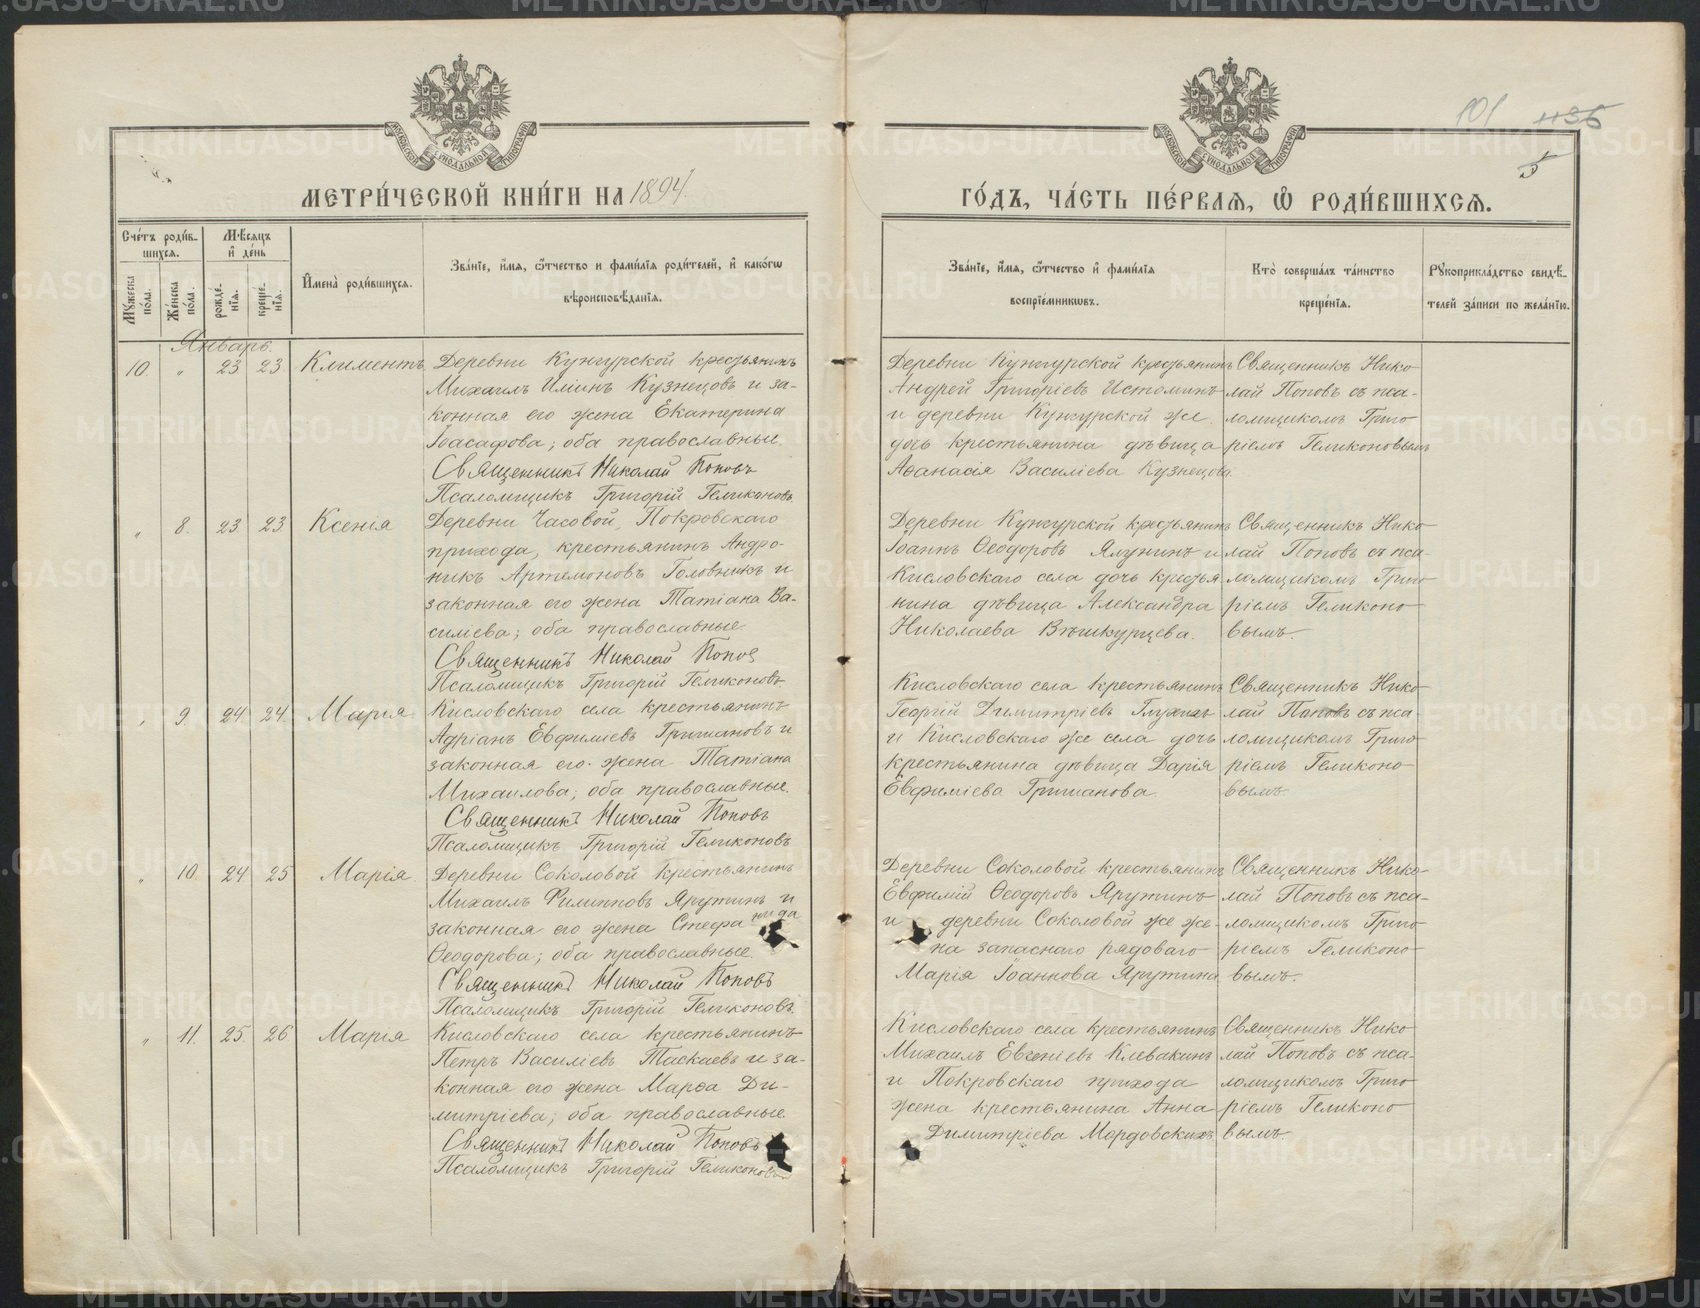 101 1136
5
МЕТРИ́ЧЕСКОЙ КНИ́ГИ НА 1894.
ГО́ДЪ, ЧА́СТЬ ПЕ́РВАЯ, Ѽ РОДИ́ВШИХСЯ.
Сче́тъ роди́в-
шихся.
Му́жеска по́ла.
Же́нска по́ла.
Мѣ́сяцъ
и҆ де́нь
рожде́-
нїя.
креще́-
нїя.
И҆мена̀ роди́вшихся.
Зва́нїе, и҆́мя, ѻ҆́тчество и фами́лїя роди́телей, и҆ како́гѡ
вѣроисповѣ́данїя.
Зва́нїе, и҆́мя, ѻ҆́тчество и҆ фами́лїя
воспрїе́мниковъ.
Кто̀ соверша́лъ та́инство
креще́нїя.
Рꙋкоприкла́дство свидѣ́-
телей за́писи по жела́нїю.
Январь.
10. " 23 23 Климентъ
Деревни Кунгурской крестьянинъ
Михаилъ Иліинъ Кузнецовъ и за-
конная его жена Екатерина
Іоасафова; оба православные.
Священникъ Николай Поповъ
Псаломщикъ Григорій Геликоновъ
Деревни Кунгурской крестьянинъ
Андрей Григоріевъ Истоминъ
и деревни Кунгурской же
дочь крестьянина дѣвица
Аѳанасія Василіева Кузнецова.
Священникъ Нико-
лай Поповъ съ пса-
ломщикомъ Григо-
ріемъ Геликоновымъ
" 8. 23 23 Ксенія
Деревни Часовой, Покровскаго
прихода, крестьянинъ Андро-
никъ Артемоновъ Головинъ и
законная его жена Татіана Ва-
силіева; оба православные.
Священникъ Николай Попов
Псаломщикъ Григорій Геликоновъ
Деревни Кунгурской крестьянинъ
Іоаннъ Ѳеодоровъ Ялунинъ и
Кисловскаго села дочь крестья-
нина дѣвица Александра
Николаева Вѣшкурцева.
Священникъ Нико-
лай Поповъ съ пса-
ломщикомъ Григо-
ріемъ Геликоно-
вымъ.
" 9 24 24 Марія
Кисловскаго села крестьянинъ
Адріанъ Евфиміевъ Гришановъ и
законная его жена Татіана
Михаилова; оба православные.
Священникъ Николай Поповъ
Псаломщикъ Григорій Геликоновъ
Кисловскаго села крестьянинъ
Георгій Димитріевъ Глухихъ
и Кисловскаго же села дочь
крестьянина дѣвица Дарія
Евфиміева Гришанова.
Священникъ Нико-
лай Поповъ съ пса-
ломщикомъ Григо-
ріемъ Геликоно-
вымъ.
" 10. 24 25 Марія
Деревни Соколовой крестьянинъ
Михаилъ Филипповъ Ярутинъ и
законная его жена Стефанида
Ѳеодорова; оба православные.
Священникъ Николай Поповъ
Псаломщикъ Григорій Геликоновъ.
Деревни Соколовой крестьянинъ
Евфимій Ѳеодоровъ Ярутинъ
и деревни Соколовой же же-
на запаснаго рядоваго
Марія Іоаннова Ярутина
Священникъ Нико-
лай Поповъ съ пса-
ломщикомъ Григо-
ріемъ Геликоно-
вымъ.
" 11. 25. 26 Марія
Кисловскаго села крестьянинъ
Петръ Василіевъ Таскаевъ и за-
конная его жена Марѳа Ди-
митріева; оба православные
Священникъ Николай Поповъ
Псаломщикъ Григорій Геликоновъ
Кисловскаго села крестьянинъ
Михаилъ Евгеніевъ Клевакинъ
и Покровскаго прихода
жена крестьянина Анна
Димитріева Мордовскихъ
Священникъ Нико-
лай Поповъ съ пса-
ломщикомъ Григо-
ріемъ Геликоно-
вымъ.
METRIKI.GASO-URAL.RU